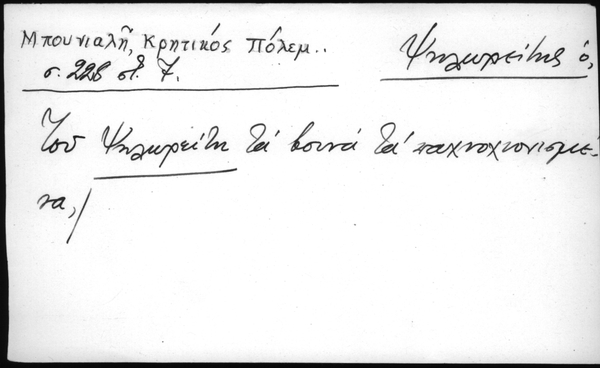 Μπουνιαλῆ, Κρητικός Πόλεμ..
σ. 228 στ. 7.
Ψηλωρείτης ὁ,
Τοῦ Ψηλωρείτη τά βουνά τά παχνοχιονισμέ-
να,/